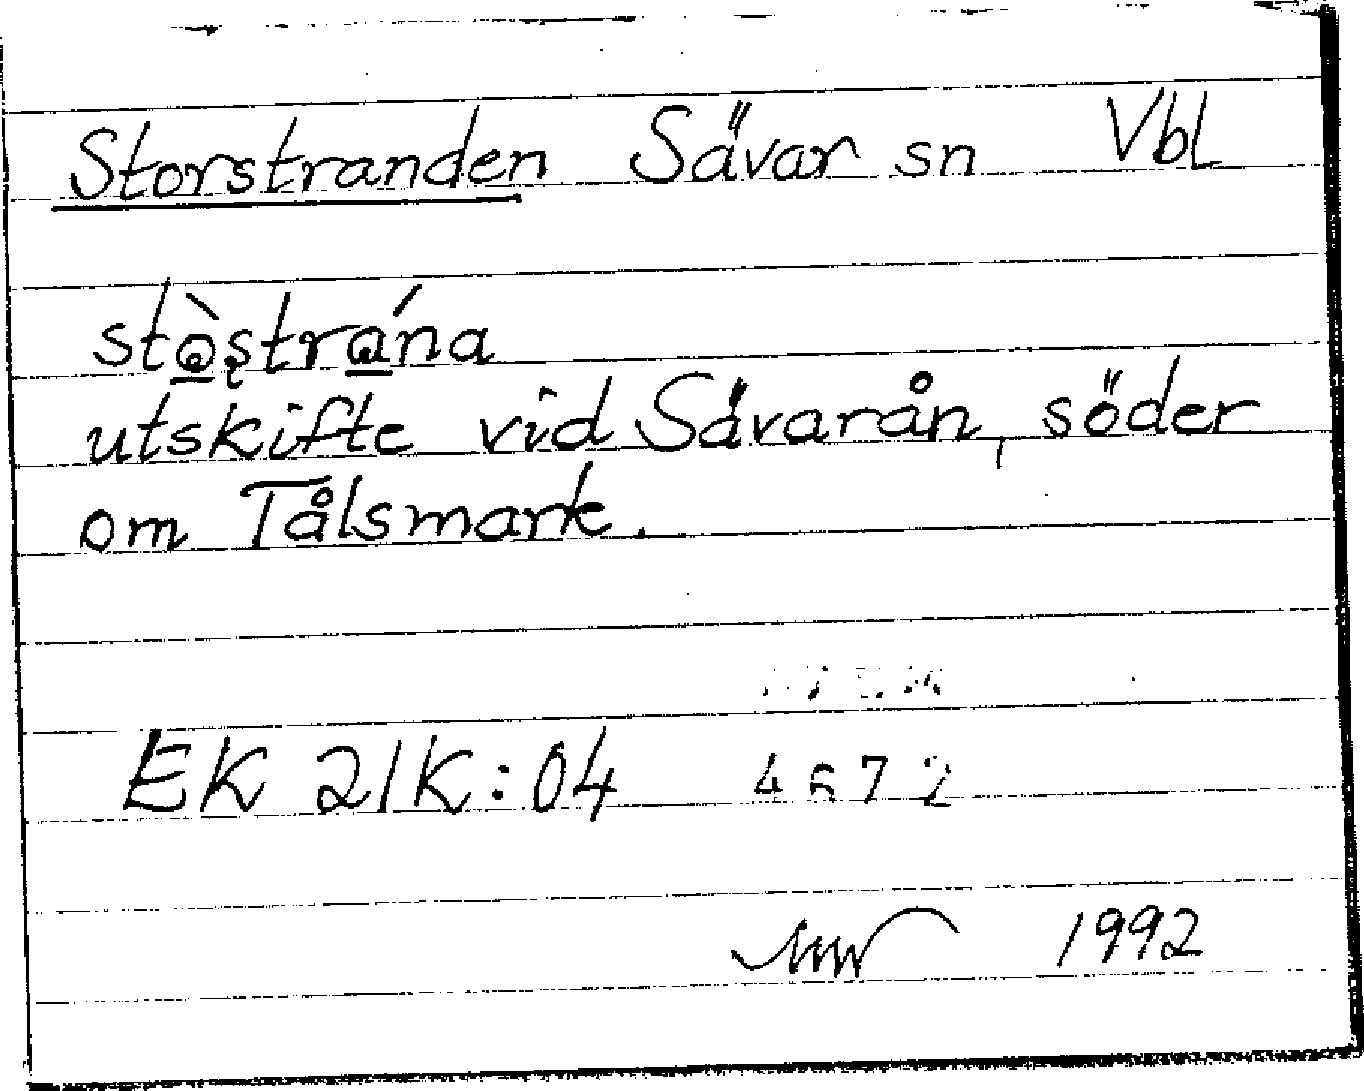 Storstranden Sävar sn Vbl
stò̱ştrána
utskifte vid Sävarån, söder
om Tålsmark.
EK 21K:04 4672
1992